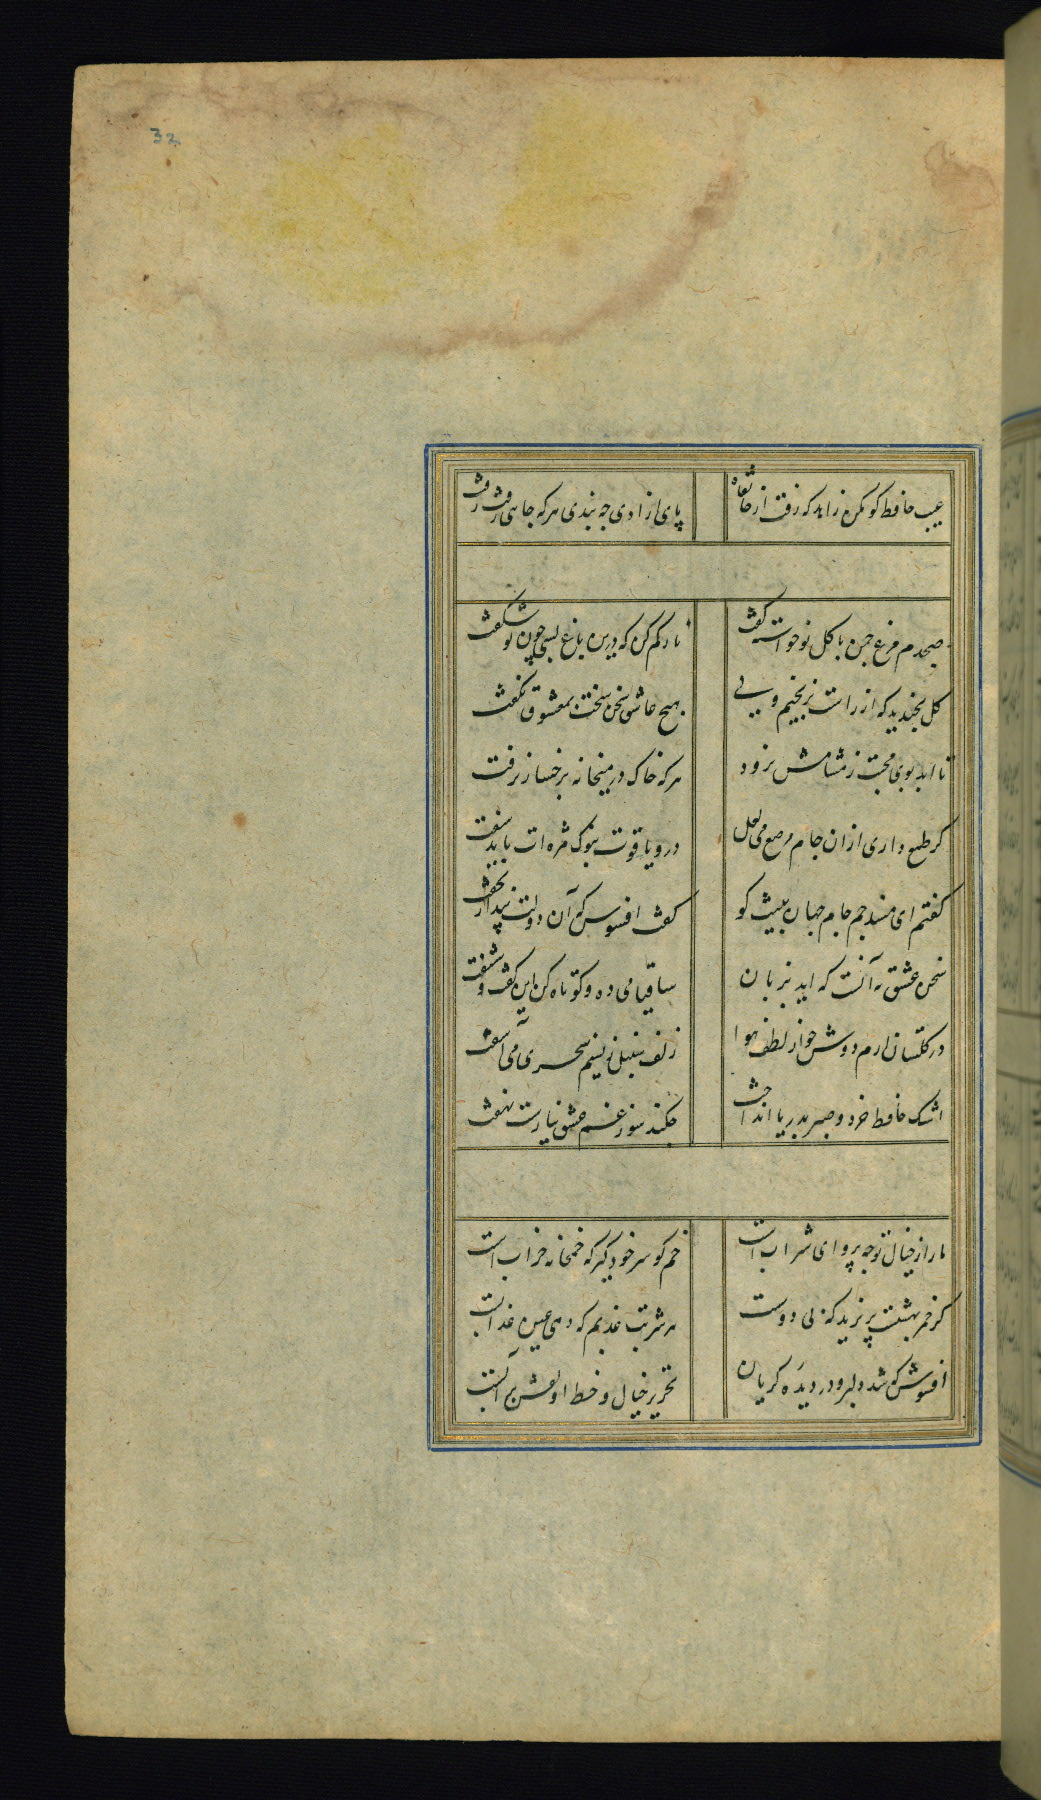 32
عیب حافظ کو مکن زاهد که رفت از خانقاه پای ازادی چه بندی هر که جایی رفت رفت
صبحدم مرغ چمن با کل نوخواسته کفت ناز کم کن که درین باغ بسی چون تو شکفت
کل بخندید که از راست نرنجیم ولی هیچ عاشق سخن سخت بمعشوق نکفت
تا ابد بوی محبت ز مشامش نرود هر که خاک در میخانه برخسار نرفت
کر طمع داری ازان جام مرصع می لعل در و یاقوت بنوک مژه ات باید سفت
کفتم ای مسند جم جام جهان بینت کو کفت افسوس که آن دولت بیدار بخفت
سخن عشق نه آنست که اید بزبان ساقیا می ده و کوتاه کن این کفت و شنفت
در کلستان ارم دوش چو از لطف هوا زلف سنبل ز نسیم سحری می آشفت
اشک حافظ خرد و صبر بدریا انداخت چکند سوز غم عشق نیارست نهفت
ما را ز خیال تو چه پروای شراب است خم کو سر خود کیر که خمخانه خراب است
کر خمر بهشتست بریزید که بی دوست هر شربت عذبم که دهی عین عذابست
افسوس که شد دلبر و در دیده کریان تحریر خیال و خط او نقش بر آبست